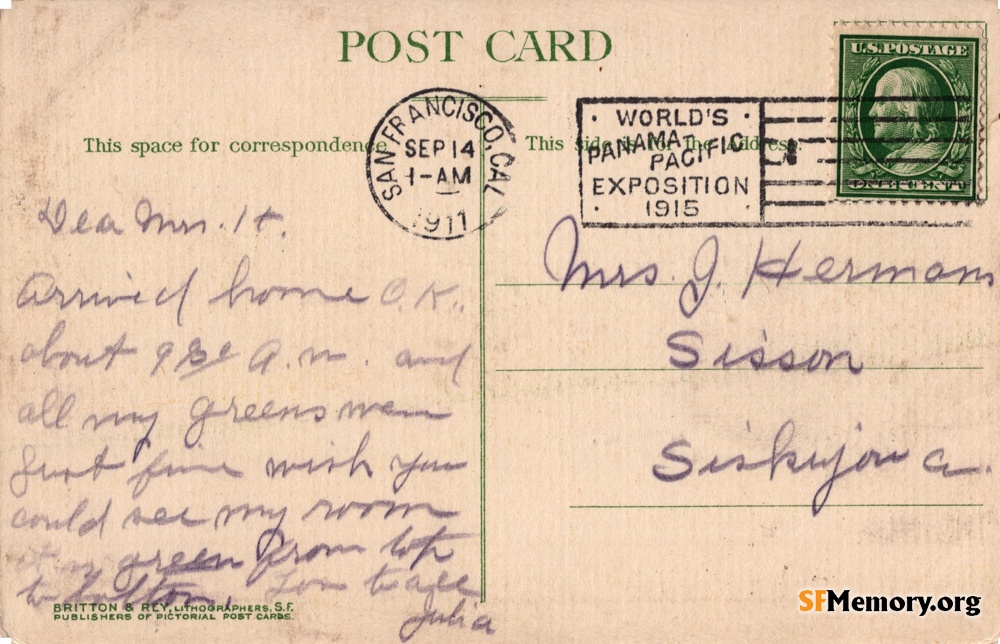 POST CARD
This space for correspondence
This side is for the Address.
SAN FRANCISCO, CAL.
SEP 14
1-AM
1911
WORLD'S
PANAMA-PACIFIC
EXPOSITION
1915
U.S. POSTAGE
ONE CENT
Dear Mrs. H.
Arrived home O.K.
about 9 30 A.M. and
all my greens were
Just fine wish you
could see my room
it is green from top
to bottom. Love to all
Julia
Mrs. J. Hermans
Sisson
Siskiyou
BRITTON & REY, LITHOGRAPHERS, S.F.
PUBLISHERS OF PICTORIAL POST CARDS.
SFMemory.org